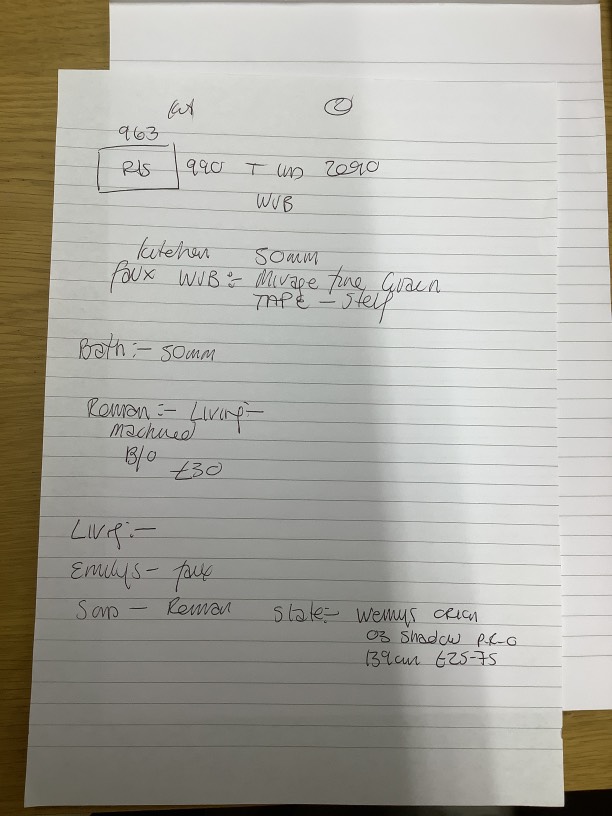 ②
963
R/S 990 T 2090
WVB
kitchen 50mm
faux WVB:- Mirage fine Grain
TAPE - Stelf
Bath:- 50mm
Roman:- Living:-
machined
B/O
£30
Livg:-
Emilys - faux
Sons - Roman Slate:- Wemys orion
03 Shadow P.K-G
139cm £25-75